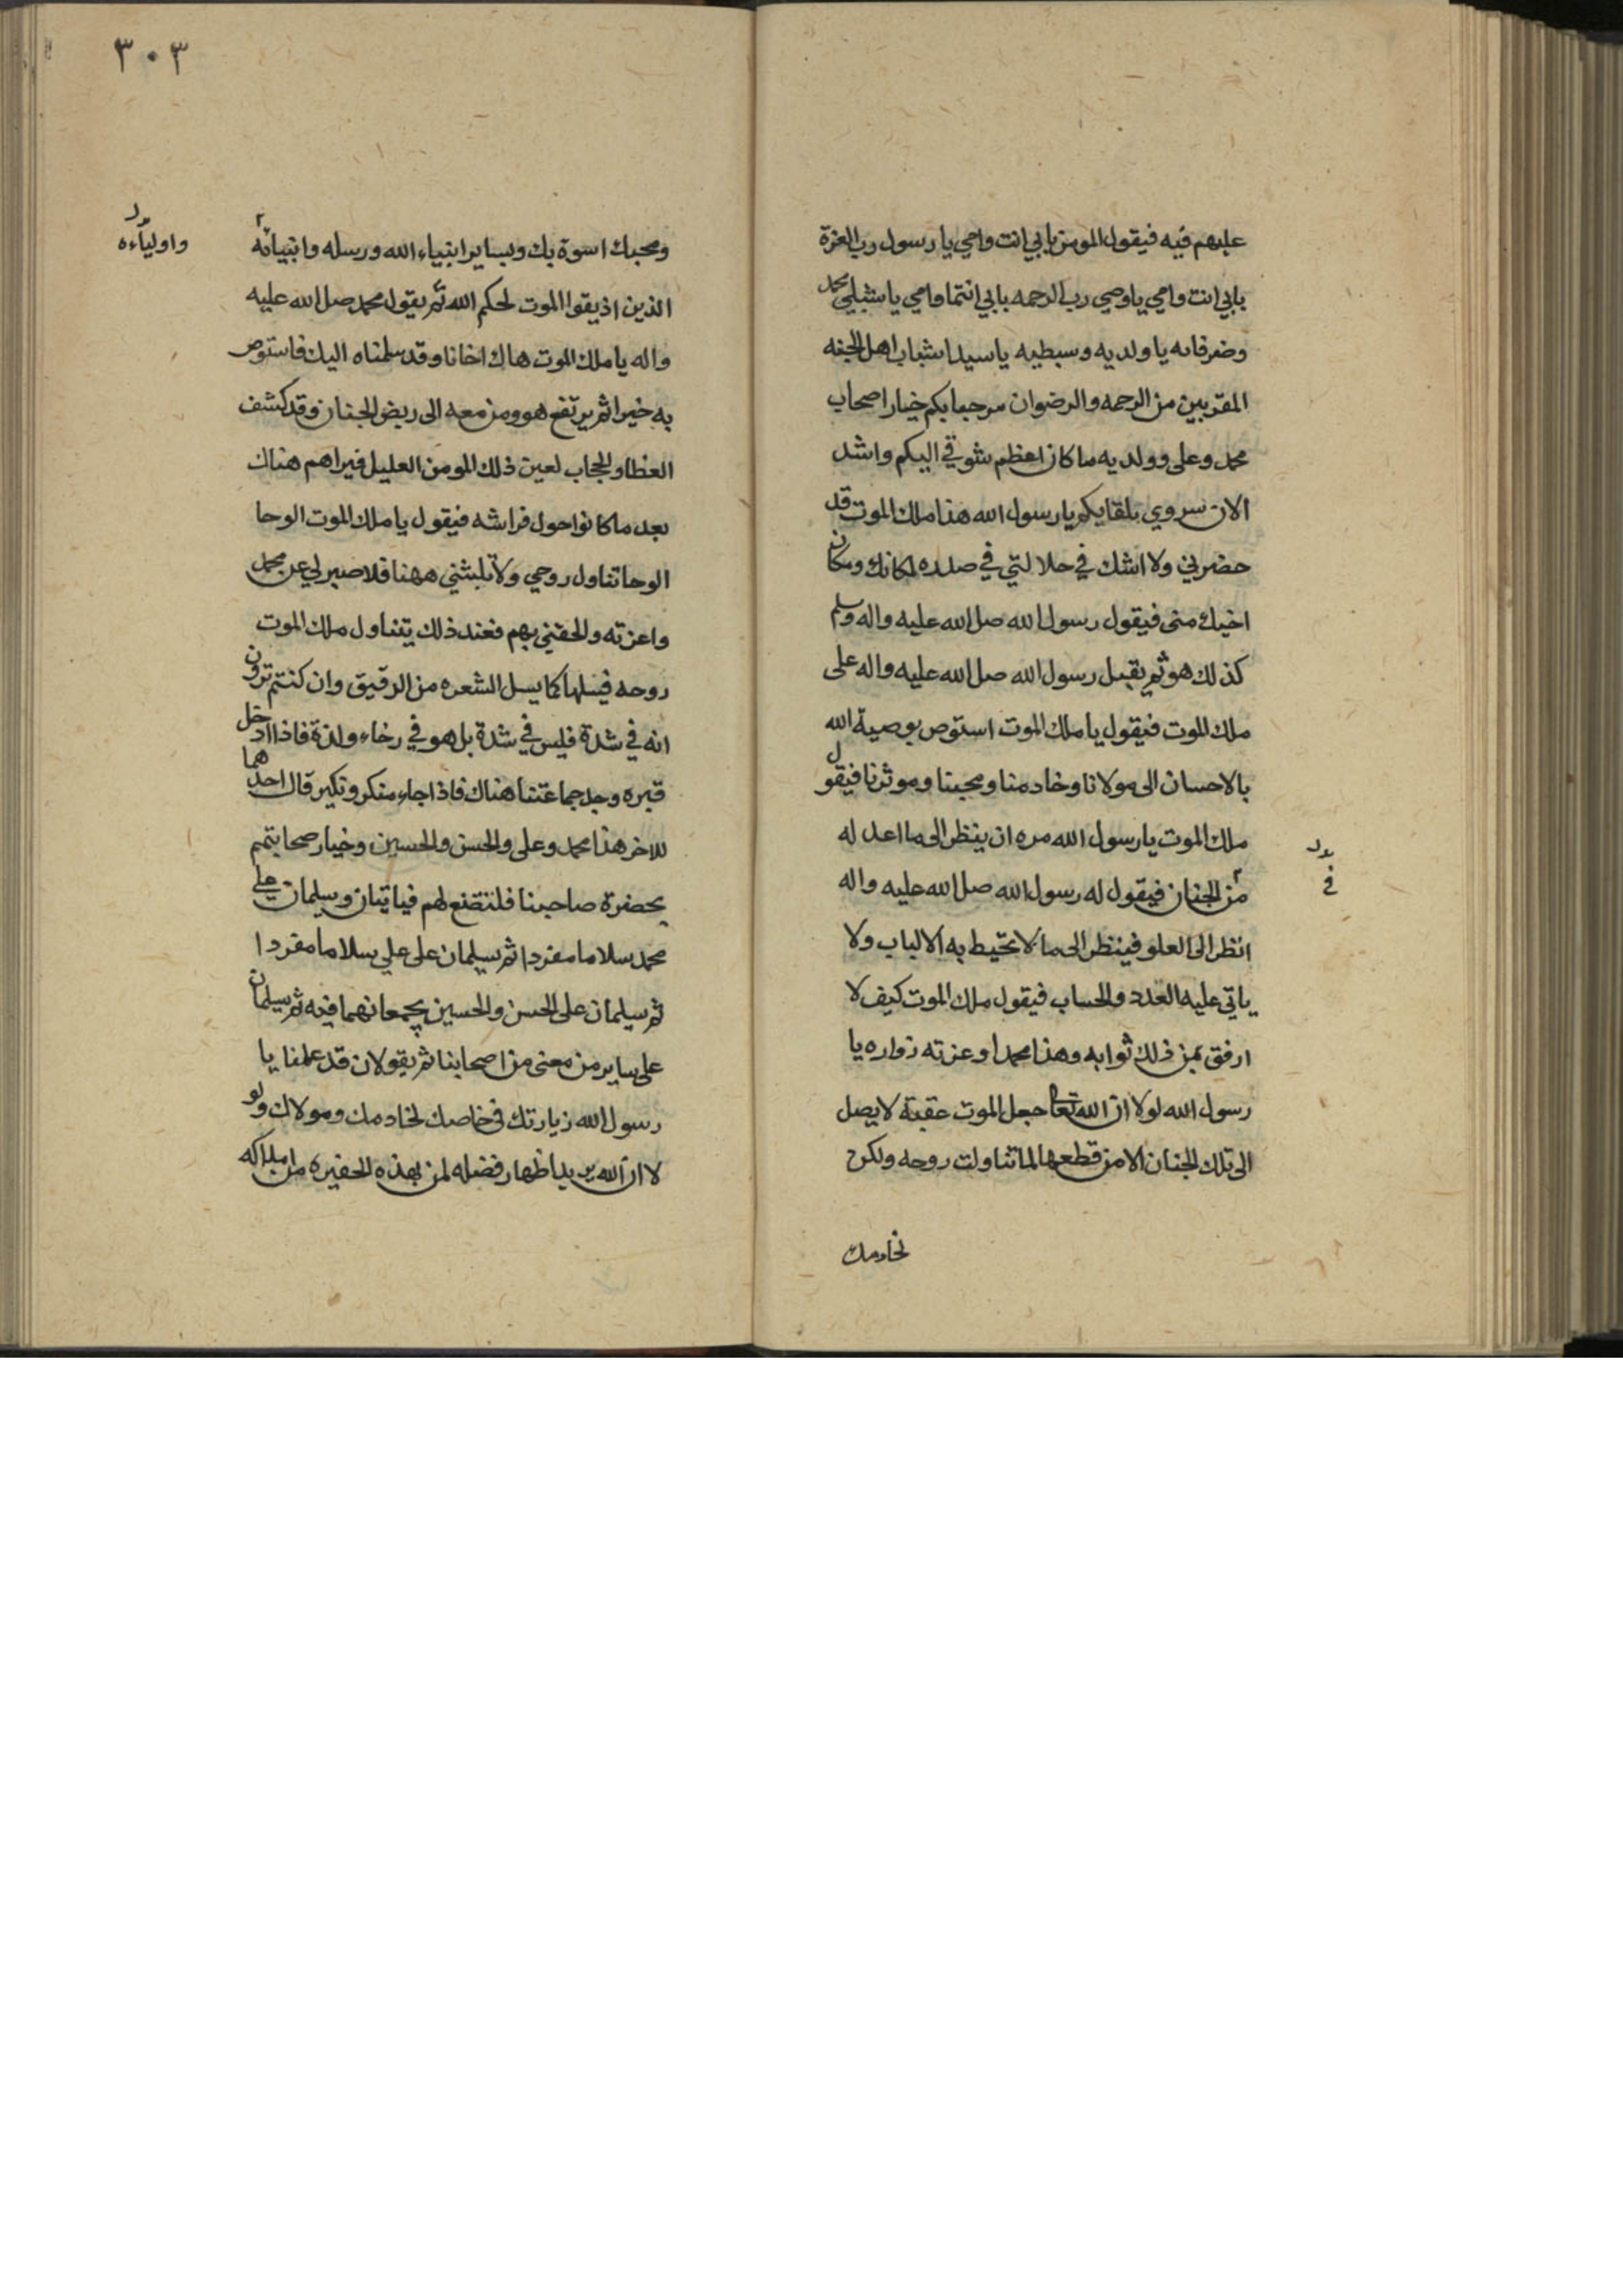 عليهم فيه فيقول المومن بابي انت وامي يا رسول رب العزة
بابي انت وامي ياوصي رب الرحمه بابي انتما وامي يا شبلي محمد
وضرغاميه يا ولديه وسبطيه ياسيدا شباب اهل الجنه
المقربين من الرحمه والرضوان مرحبا بكم خيار اصحاب
محمد وعلى وولديه ما كان اعظم شوقي اليكم واشد
الان سروري بلقايكم يا رسول الله هذا ملك الموت قد
حضرني ولا اشك في جلالتي في صدره لمكانك ومكان
اخيك منى فيقول رسول الله صل الله عليه واله وسلم
كذلك هو ثم يقبل رسول الله صل الله عليه واله على
ملك الموت فيقول يا ملك الموت استوص بوصية الله
بالاحسان الى مولانا وخادمنا ومحبنا وموثرنا فيقول
ملك الموت يا رسول الله مره ان ينظر الى ما اعد له
من الجنان فيقول له رسول الله صل الله عليه واله
في
انظر الى العلو فينظر الى ما لا تحيط به الالباب ولا
ياتي عليه العدد والحساب فيقول ملك الموت كيف لا
ارفق بمن ذلك ثوابه وهذا محمد وعزته زواره يا
رسول الله لولا ان الله تعا جعل الموت عقبة لا يصل
الى تلك الجنان الا من قطعها لما تناولت روحه ولكن
لخادمك
٣٠٣
ومحبك اسوة بك وبساير انبياء الله ورسله وانبيائه
واولياءه
الذين اذيقوا الموت لحكم الله ثم يقول محمد صل الله عليه
واله يا ملك الموت هاك اخانا وقد سلمناه اليك فاستوص
به خيرا ثم يرتفع هو ومن معه الى ربض الجنان وقد كشف
الغطا والحجاب لعين ذلك المومن العليل فيراهم هناك
بعد ما كانوا حول فراشه فيقول يا ملك الموت الوحا
الوحا تناول روحي ولا تلبثني ههنا فلا صبر لي عن محمد
واعزته والحقني بهم فعند ذلك يتناول ملك الموت
روحه فيسلها كما يسل الشعره من الدقيق وان كنتم ترون
انه في شدة فليس في شدة بل هو في رخاء ولذة فاذا ادخل
قبره وجد جماعتنا هناك فاذا جاء منكر ونكير قال احدهما
للاخر هذا محمد وعلى والحسن والحسين وخيار صحابتهم
بحضرة صاحبنا فلنتضع لهم فياتيان ويسلمان على
محمد سلاما مفردا ثم يسلمان على علي سلاما مفردا
ثم يسلمان على الحسن والحسين يجمعانهما فيه ثم يسلمان
على ساير من معنى من اصحابنا ثم يقولان قد علمنا يا
رسول الله زيارتك في خاصك لخادمك ومولاك ولو
لا ان الله يريد اظهار فضله لمن بهذه الحفيره من املاكه